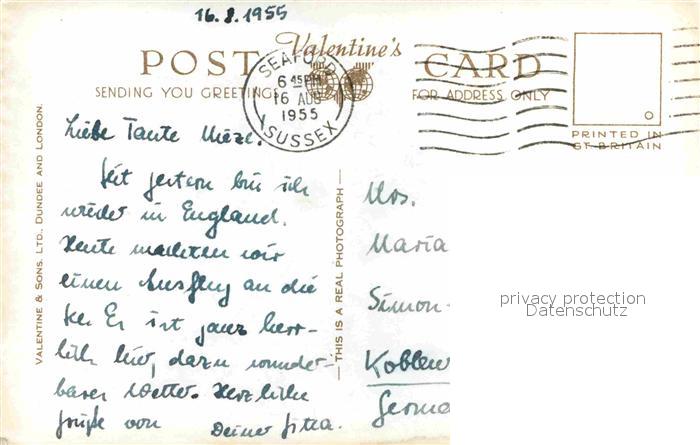 16.8.1955
Valentine's
POST CARD
SENDING YOU GREETINGS
FOR ADDRESS ONLY
SEAFORD
6 45 PM
16 AUG
1955
SUSSEX
PRINTED IN
GT. BRITAIN
VALENTINE & SONS, LTD., DUNDEE AND LONDON.
THIS IS A REAL PHOTOGRAPH
Liebe Tante Mieze.
Seit gestern bin ich
wieder in England.
Heute machten wir
einen Ausflug an die
See. Es ist ganz herr-
lich hier, dazu wunder-
bares Wetter. Herzliche
Grüße von Deiner Gitta.
Mrs.
Maria
Simon-
Koblen
Germa
privacy protection
Datenschutz